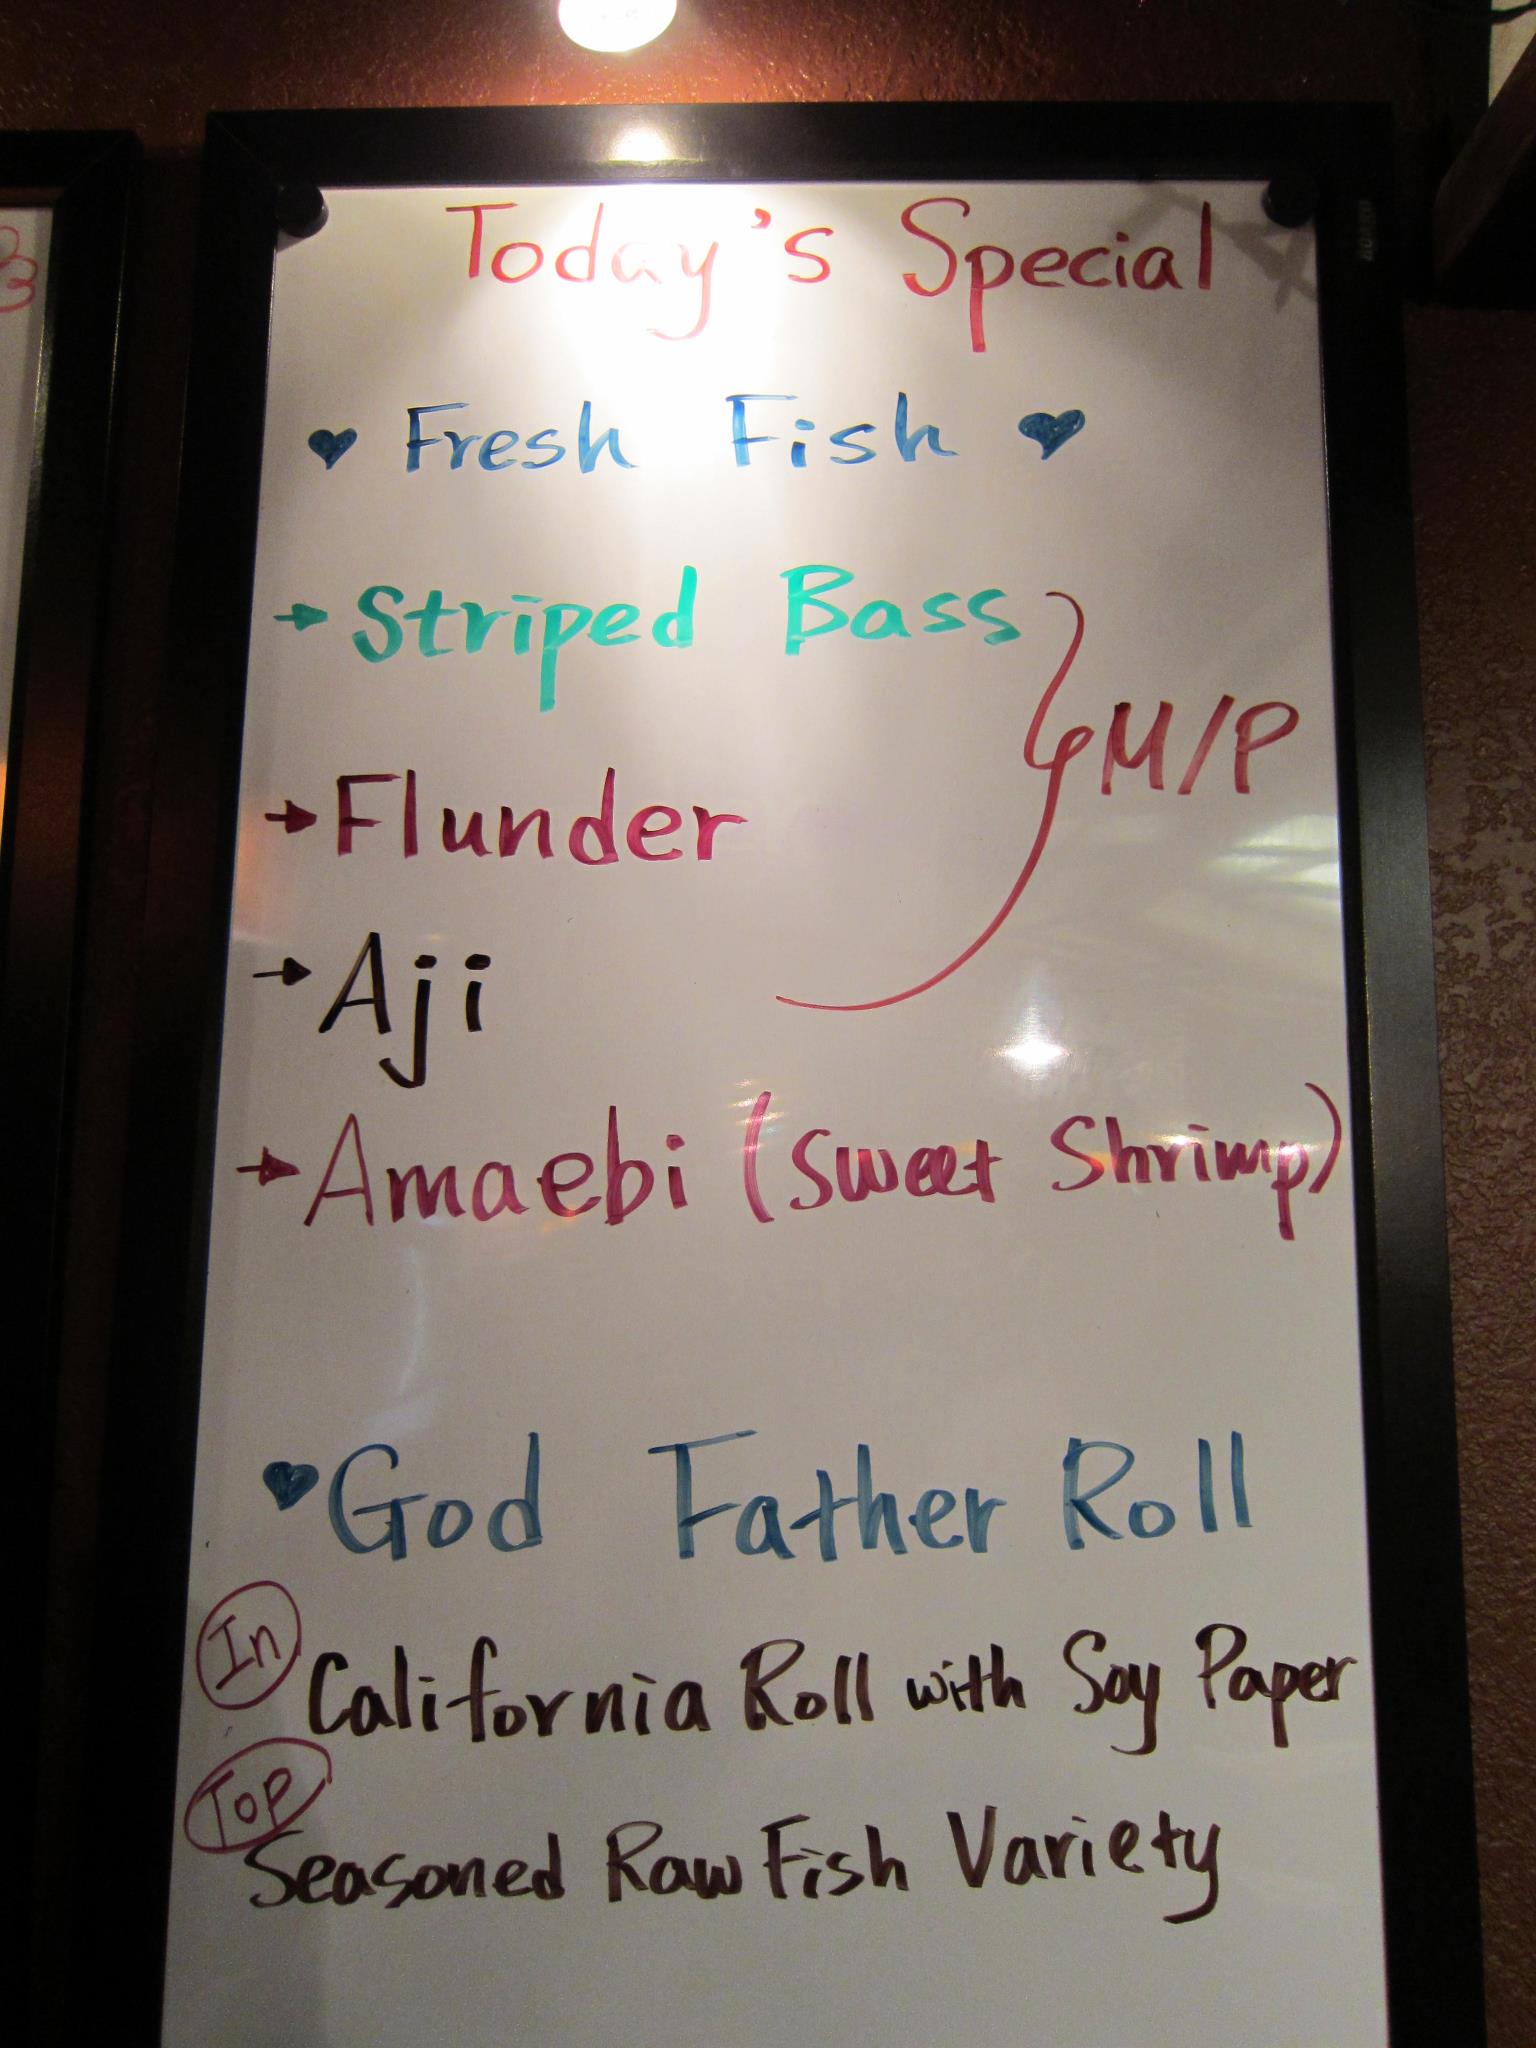 Today's Special
♥ Fresh Fish ♥
→ Striped Bass
M/P
→ Flunder
→ Aji
→ Amaebi (Sweet Shrimp)
♥ God Father Roll
In
California Roll with Soy Paper
Top
Seasoned Raw Fish Variety